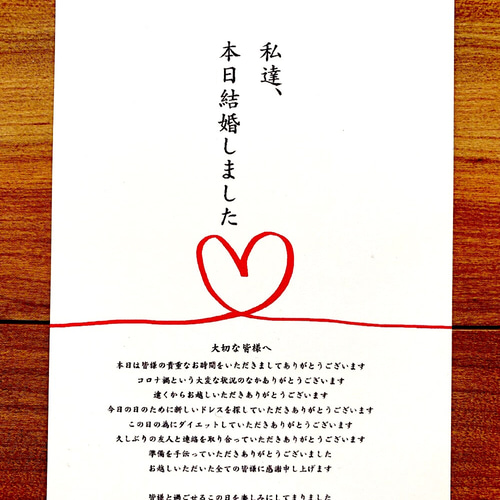 私達、
本日結婚しました
大切な皆様へ
本日は皆様の貴重なお時間をいただきましてありがとうございます
コロナ禍という大変な状況のなかありがとうございます
遠くからお越しいただきありがとうございます
今日の日のために新しいドレスを探していただきありがとうございます
この日の為にダイエットしていただきありがとうございます
久しぶりの友人と連絡を取り合っていただきありがとうございます
準備を手伝っていただきありがとうございました
お越しいただいた全ての皆様に感謝申し上げます
皆様と過ごせるこの日を楽しみにしてまりました